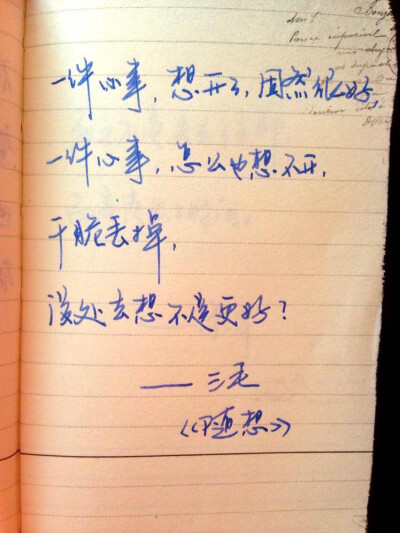 一件心事，想开了，固然很好
一件心事，怎么也想不开，
干脆丢掉，
没处去想不是更好？
——三毛
《随想》